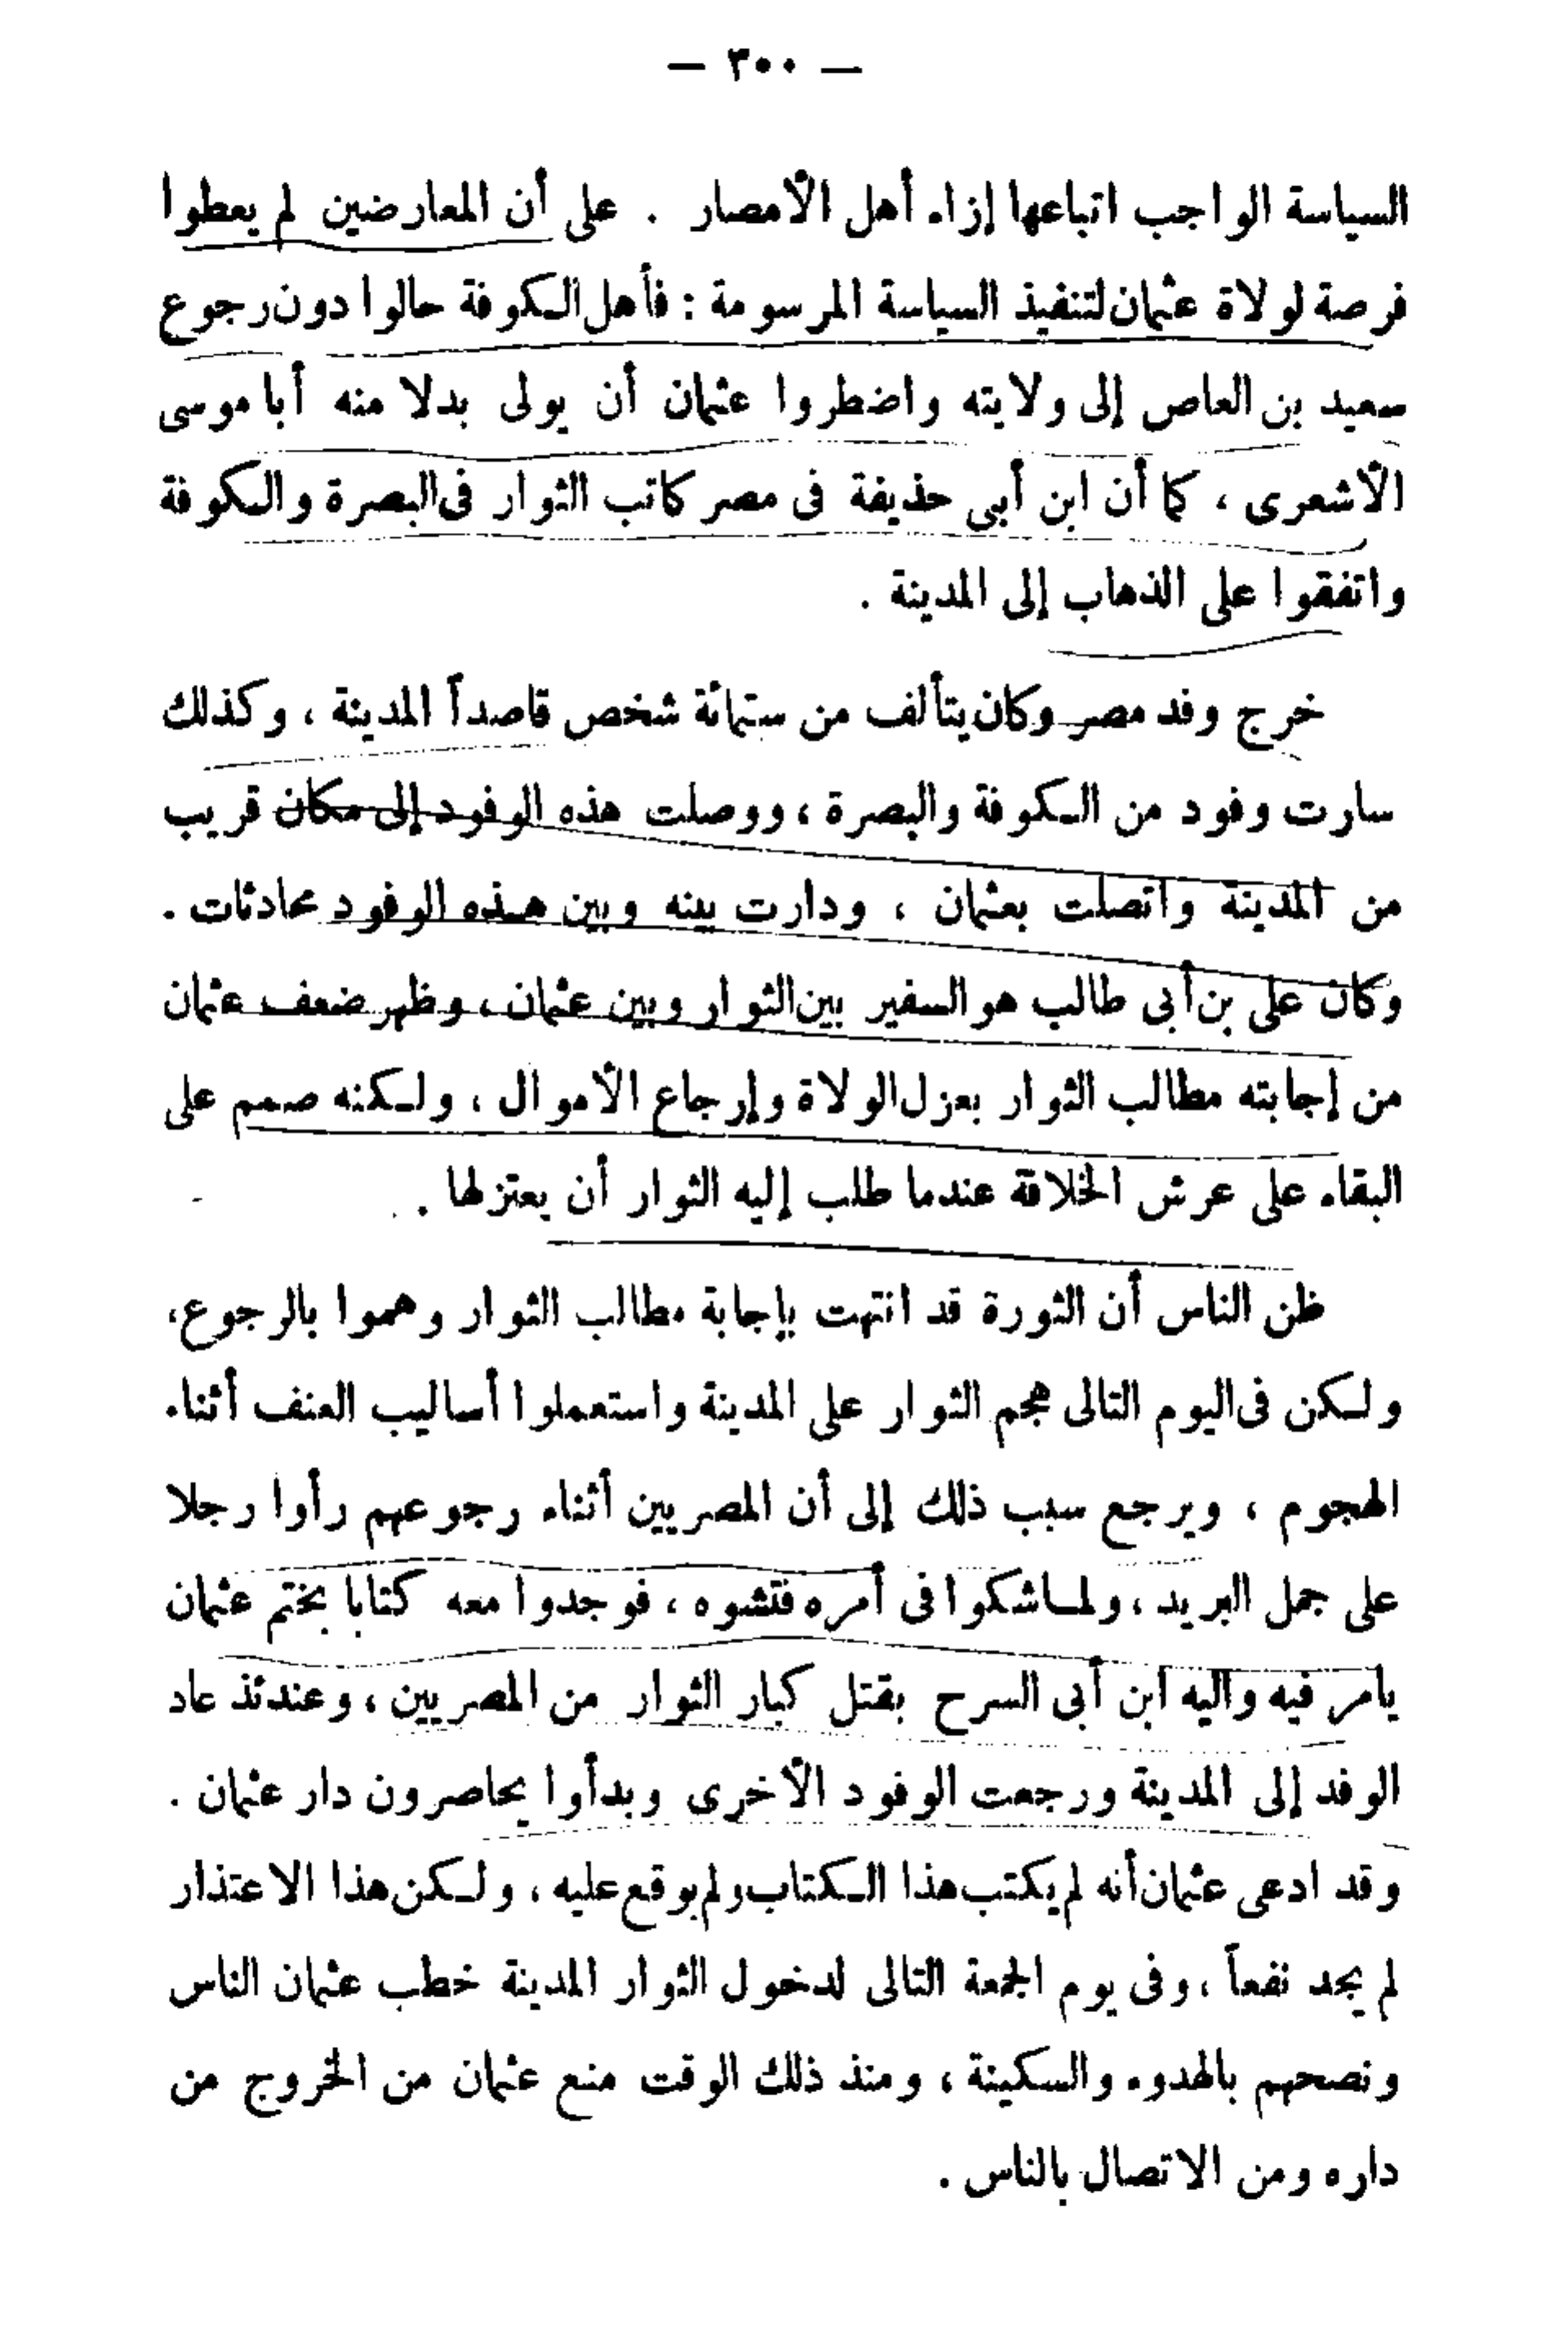 — ٣٠٠ —
السياسة الواجب اتباعها إزاء أهل الأمصار . على أن المعارضين لم يعطوا
فرصة لولاة عثمان لتنفيذ السياسة المرسومة : فأهل الكوفة حالوا دون رجوع
سعيد بن العاص إلى ولايته واضطروا عثمان أن يولى بدلا منه أبا موسى
الأشعرى ، كما أن ابن أبى حذيفة فى مصر كاتب الثوار فى البصرة والكوفة
واتفقوا على الذهاب إلى المدينة .
خرج وفد مصر وكان يتألف من ستمائة شخص قاصداً المدينة ، وكذلك
سارت وفود من الكوفة والبصرة ، ووصلت هذه الوفود إلى مكان قريب
من المدينة واتصلت بعثمان ، ودارت بينه وبين هذه الوفود محادثات .
وكان على بن أبى طالب هو السفير بين الثوار وبين عثمان ، وظهر ضعف عثمان
من إجابته مطالب الثوار بعزل الولاة وإرجاع الأموال ، ولكنه صمم على
البقاء على عرش الخلافة عندما طلب إليه الثوار أن يعتزلها .
ظن الناس أن الثورة قد انتهت بإجابة مطالب الثوار وهموا بالرجوع،
ولكن فى اليوم التالى هجم الثوار على المدينة واستعملوا أساليب العنف أثناء
الهجوم ، ويرجع سبب ذلك إلى أن المصريين أثناء رجوعهم رأوا رجلا
على جمل البريد ، ولما شكوا فى أمره فتشوه ، فوجدوا معه كتابا بختم عثمان
يامر فيه واليه ابن أبى السرح بقتل كبار الثوار من المصريين ، وعندئذ عاد
الوفد إلى المدينة ورجعت الوفود الأخرى وبدأوا يحاصرون دار عثمان .
وقد ادعى عثمان أنه لم يكتب هذا الكتاب ولم يوقع عليه ، ولكن هذا الاعتذار
لم يجد نفعاً ، وفى يوم الجمعة التالى لدخول الثوار المدينة خطب عثمان الناس
ونصحهم بالهدوء والسكينة ، ومنذ ذلك الوقت منع عثمان من الخروج من
داره ومن الاتصال بالناس .